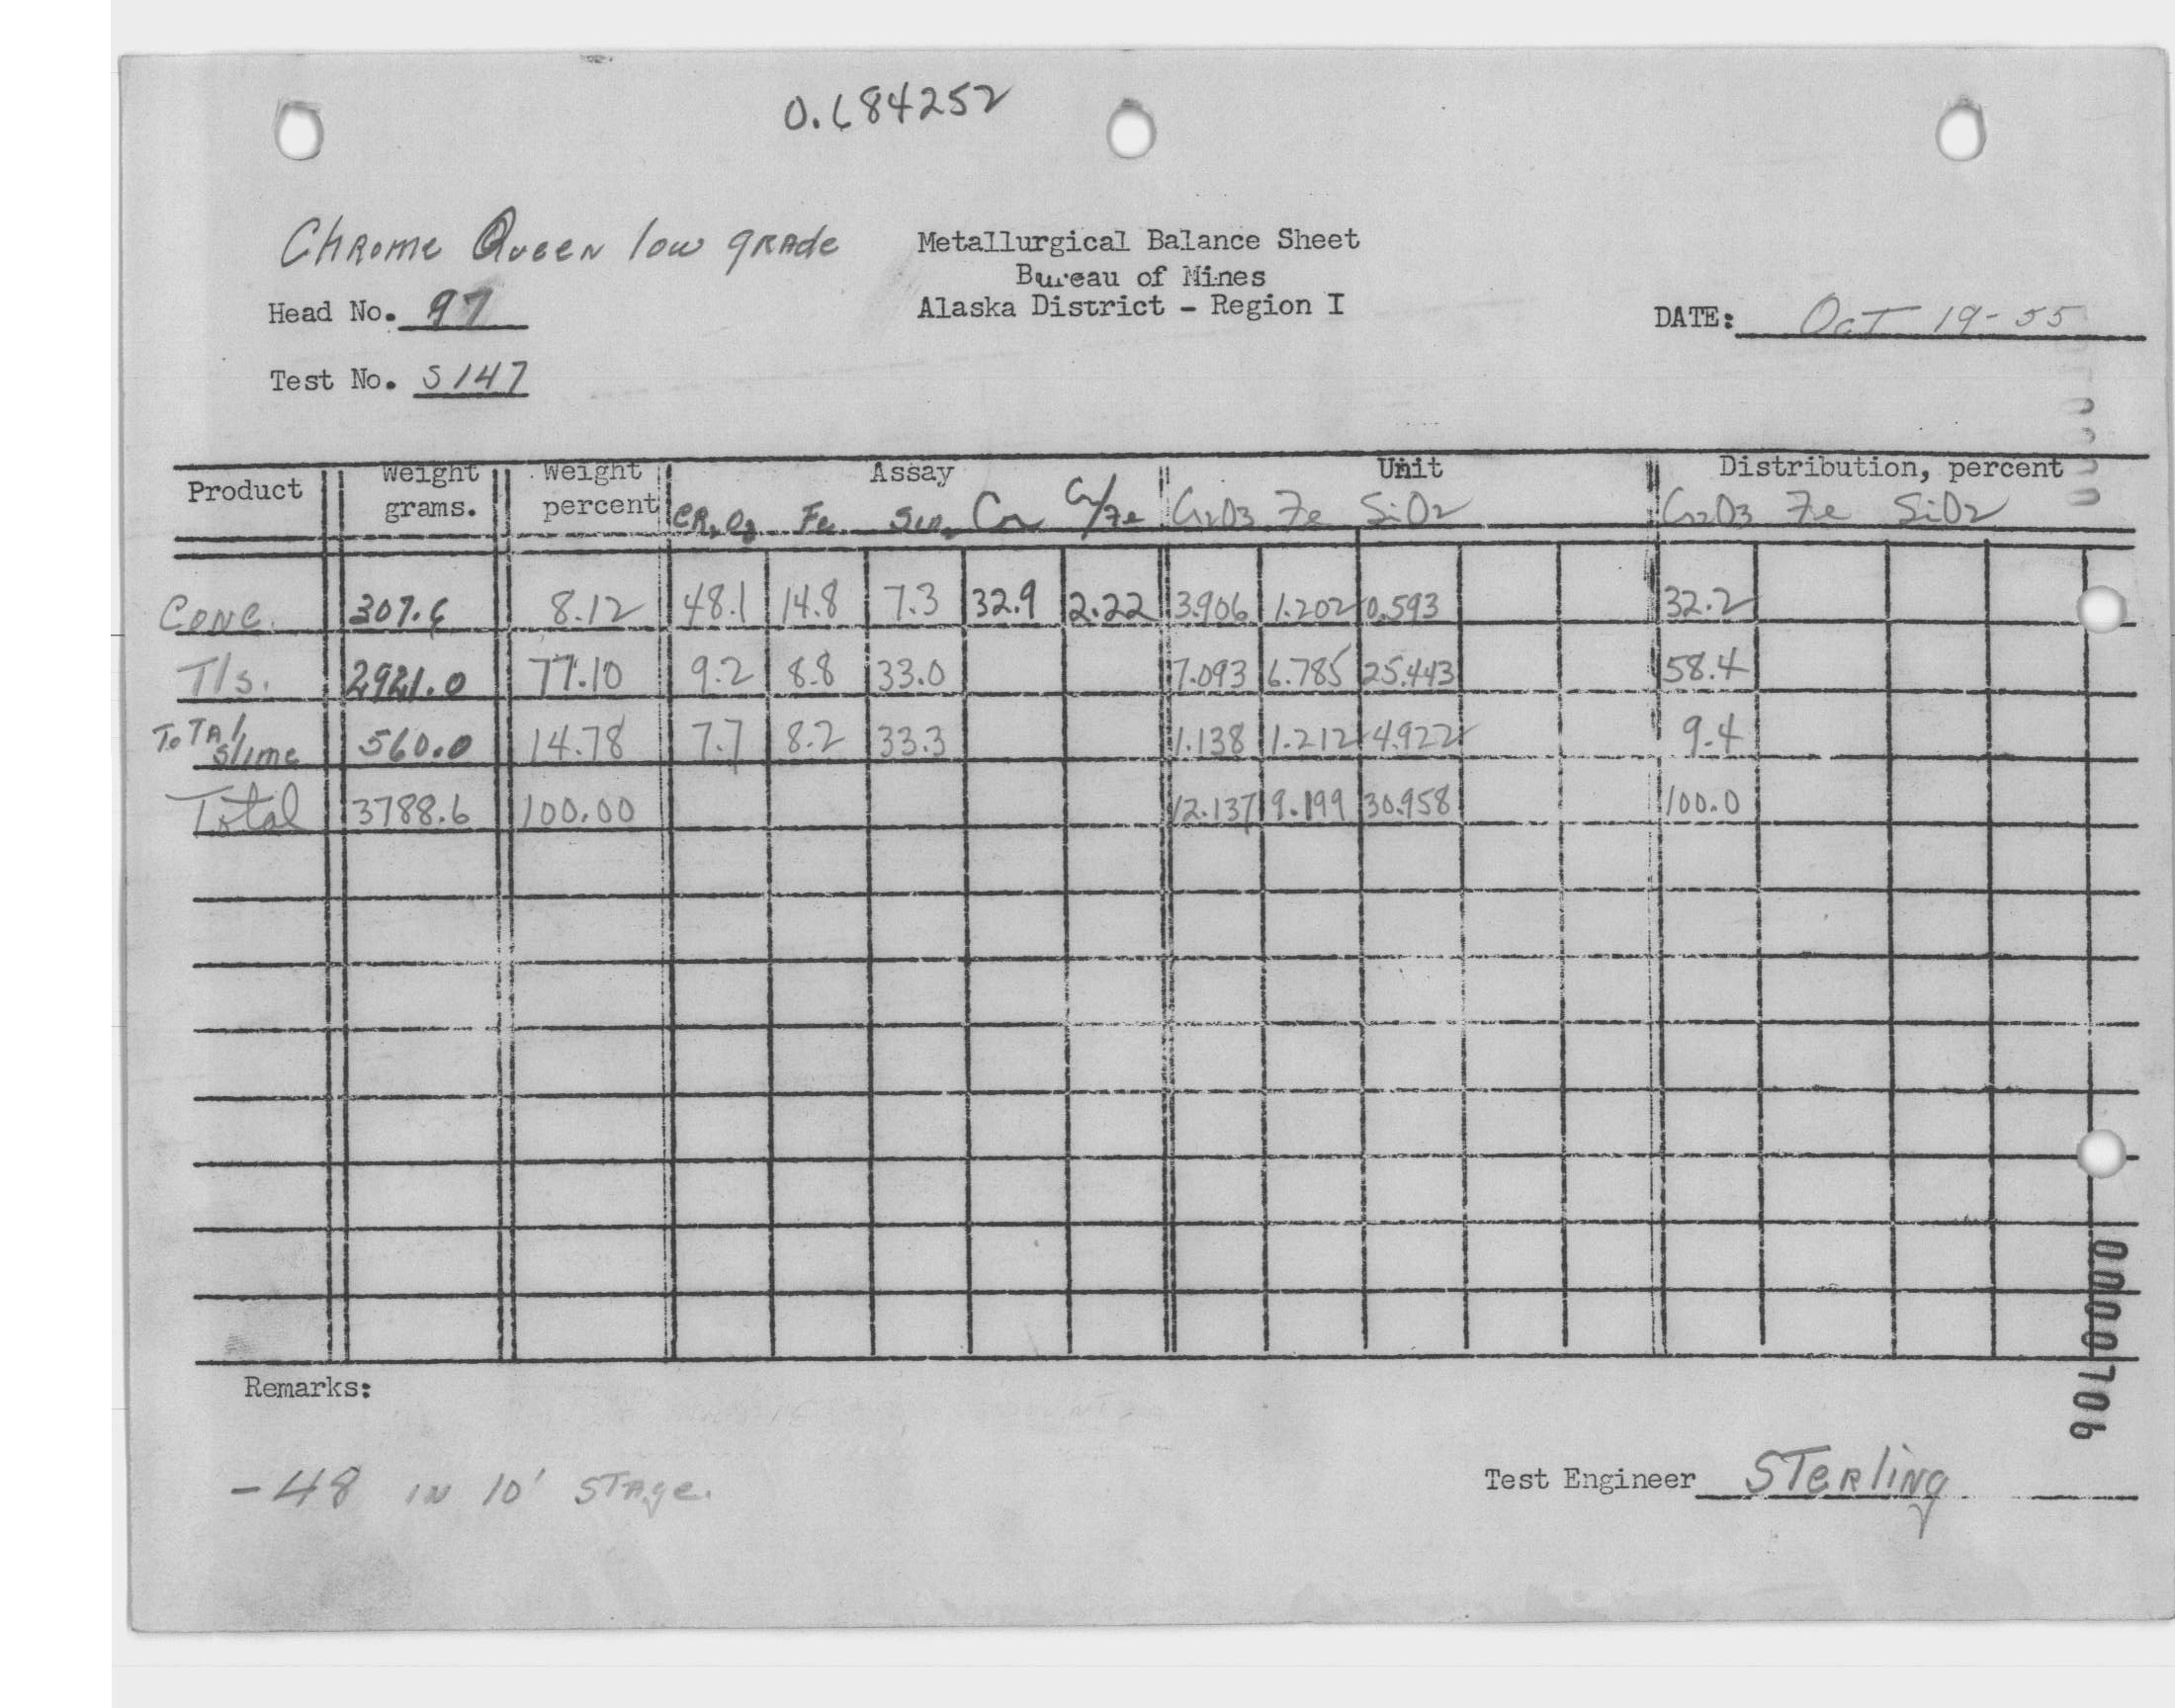 0.684252
Chrome Queen low grade
Metallurgical Balance Sheet
Bureau of Mines
Alaska District - Region I
Head No. 97
DATE: Oct 19-55
Test No. S147
Product Weight grams. Weight percent Assay Unit Distribution, percent
Cr2O3 Fe SiO2 Cr Cr/Fe Cr2O3 Fe SiO2 Cr2O3 Fe SiO2
Conc. 307.6 8.12 48.1 14.8 7.3 32.9 2.22 3.906 1.202 0.593 32.2
Tls. 2921.0 77.10 9.2 8.8 33.0 7.093 6.785 25.443 58.4
Total Slime 560.0 14.78 7.7 8.2 33.3 1.138 1.212 4.922 9.4
Total 3788.6 100.00 12.137 9.199 30.958 100.0
Remarks:
-48 in 10' stage.
Test Engineer Sterling
0000706